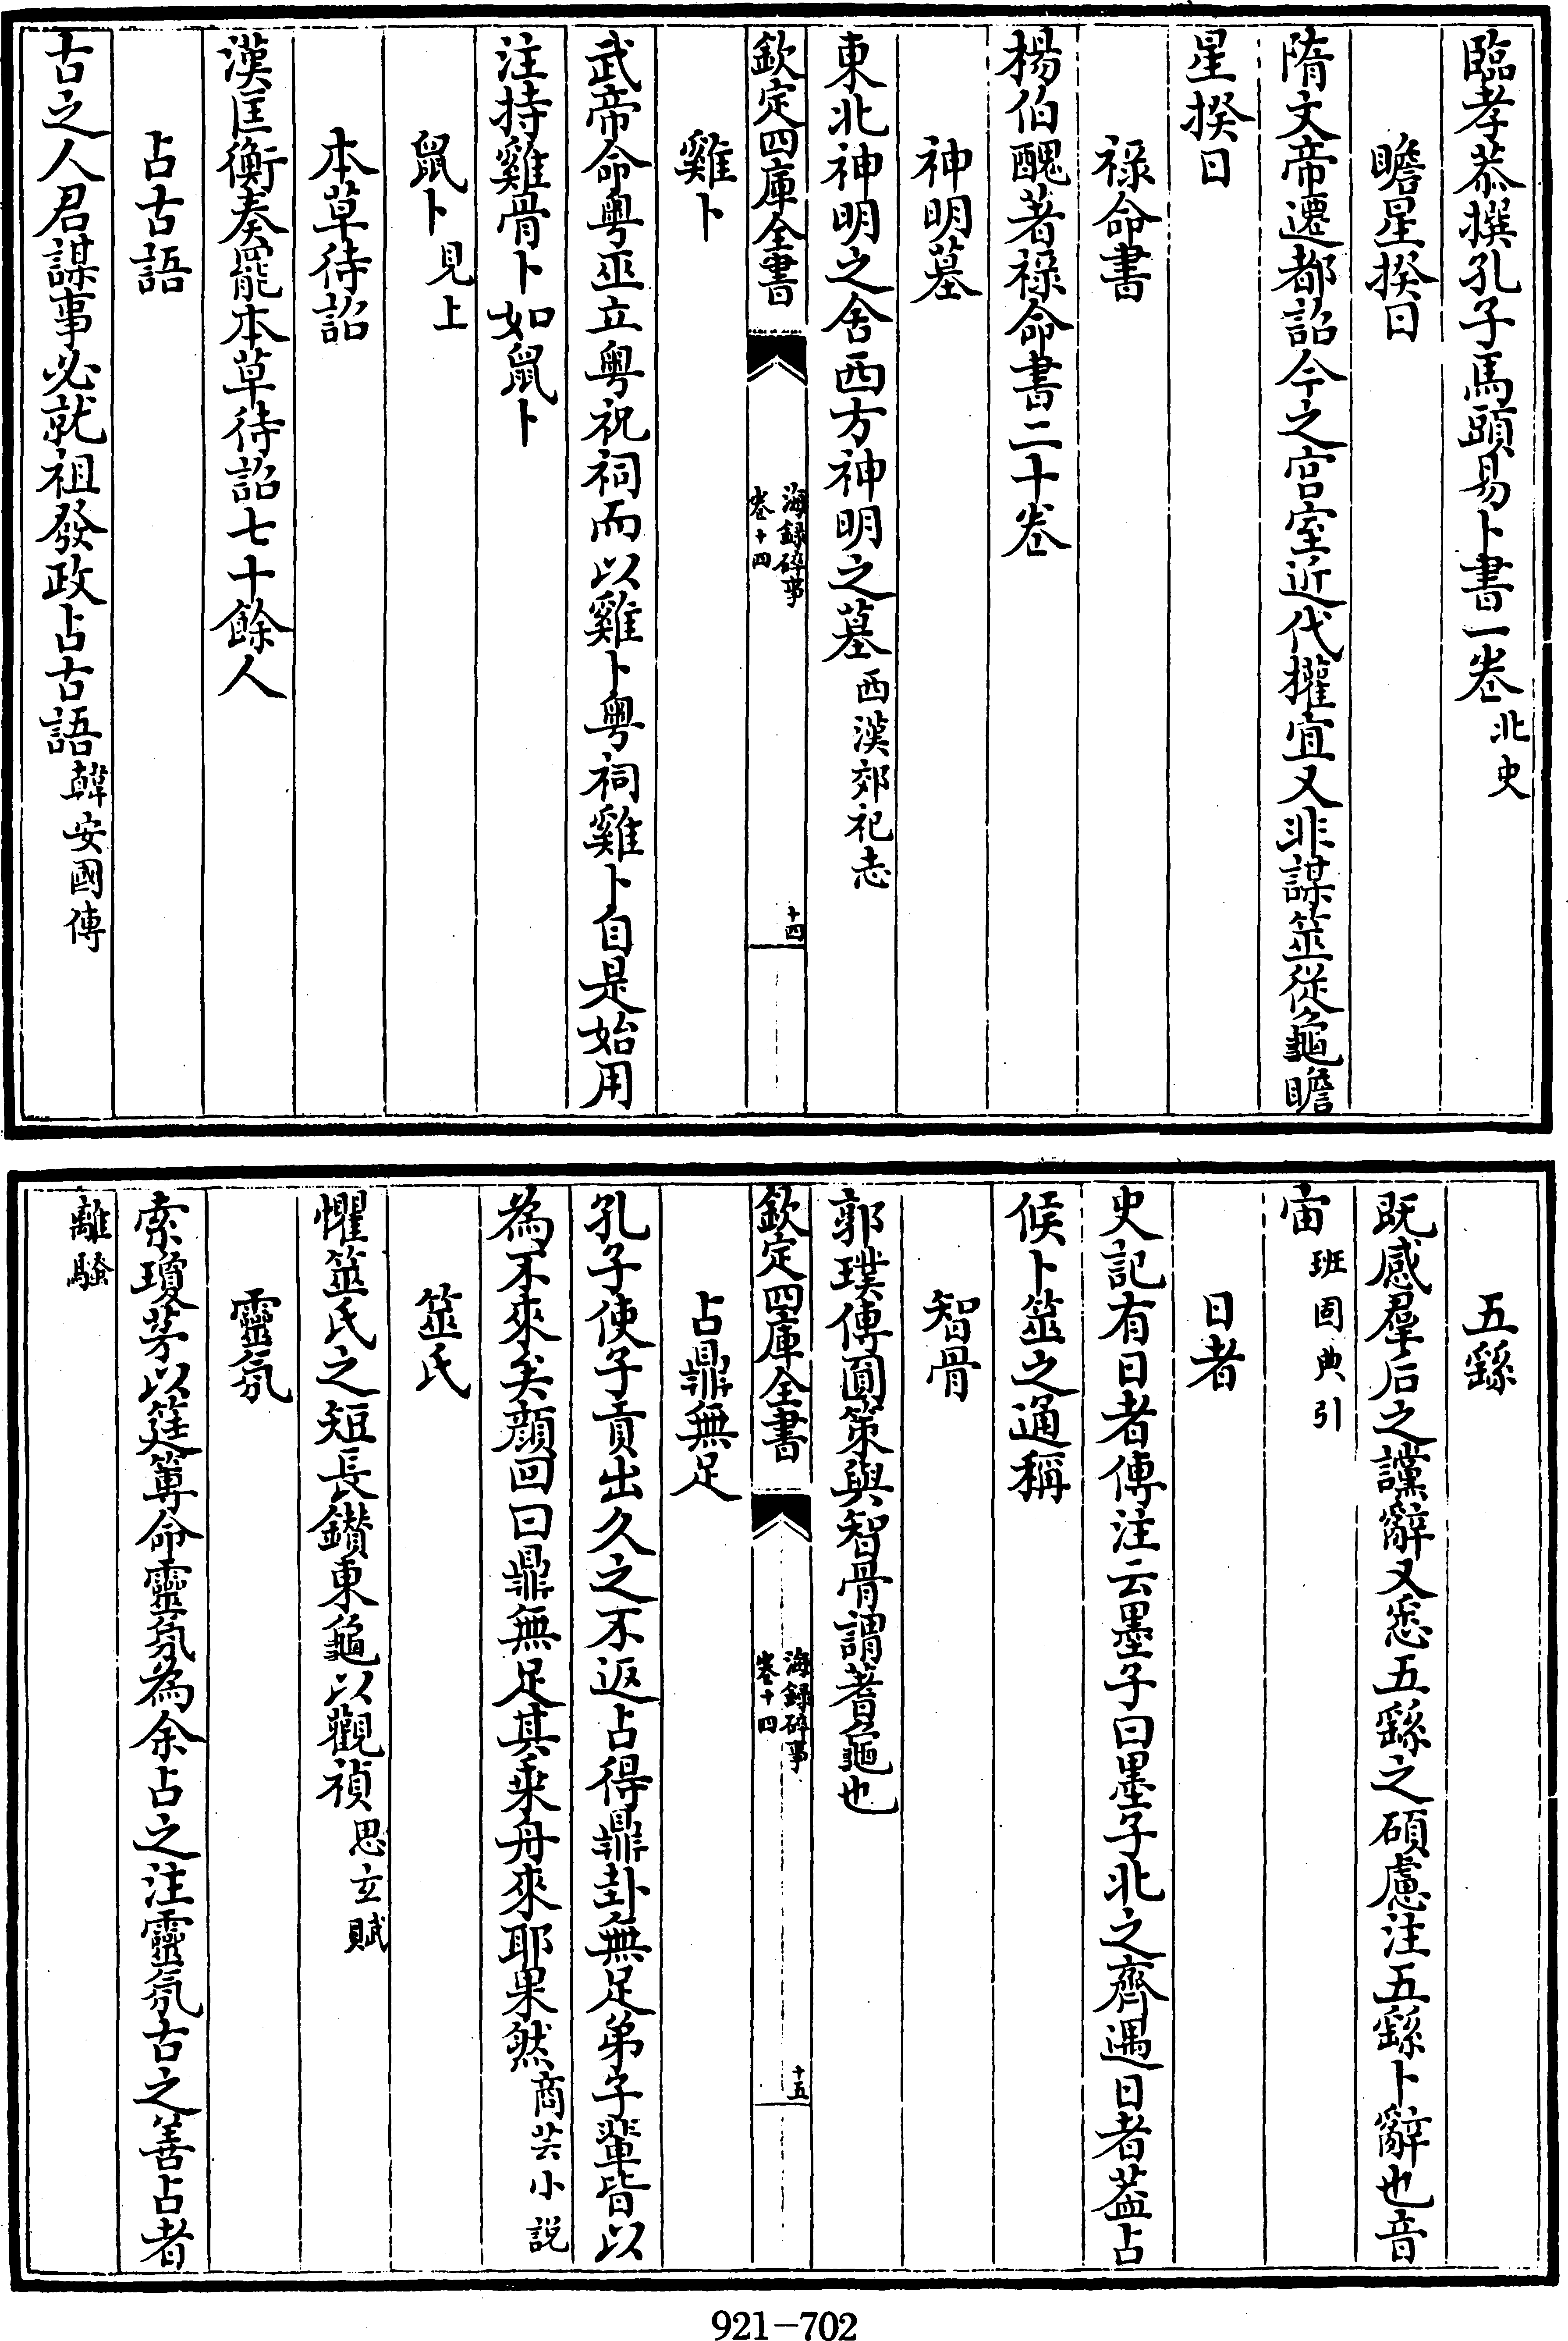 臨孝恭撰孔子馬頭易卜書一卷北史
瞻星揆日
隋文帝遷都詔今之宫室近代權宜又非謀筮從龜瞻
星揆日
祿命書
楊伯醜著祿命書二十卷
神明墓
東北神明之舍西方神明之墓西漢郊祀志
欽定四庫全書
海録碎事
卷十四
十四
雞卜
武帝命粤巫立粤祝祠而以雞卜粤祠雞卜自是始用
注持雞骨卜如鼠卜
鼠卜見上
本草待詔
漢匡衡奏罷本草待詔七十餘人
占古語
古之人君謀事必就祖發政占古語韓安國傳
五繇
既感羣后之讜辭又悉五繇之碩慮注五繇卜辭也音
宙班固典引
日者
史記有日者傳注云墨子曰墨子北之齊遇日者葢占
候卜筮之通稱
智骨
郭璞傳圓策與智骨謂蓍龜也
欽定四庫全書
海録碎事
卷十四
十五
占鼎無足
孔子使子貢出久之不返占得鼎卦無足弟子輩皆以
為不來矣顔回曰鼎無足其乗舟來耶果然商芸小説
筮氏
懼筮氏之短長鑚東龜以觀禎思𤣥賦
靈氛
索瓊茅以筳篿命靈氛為余占之注靈氛古之善占者
離騷
921-702